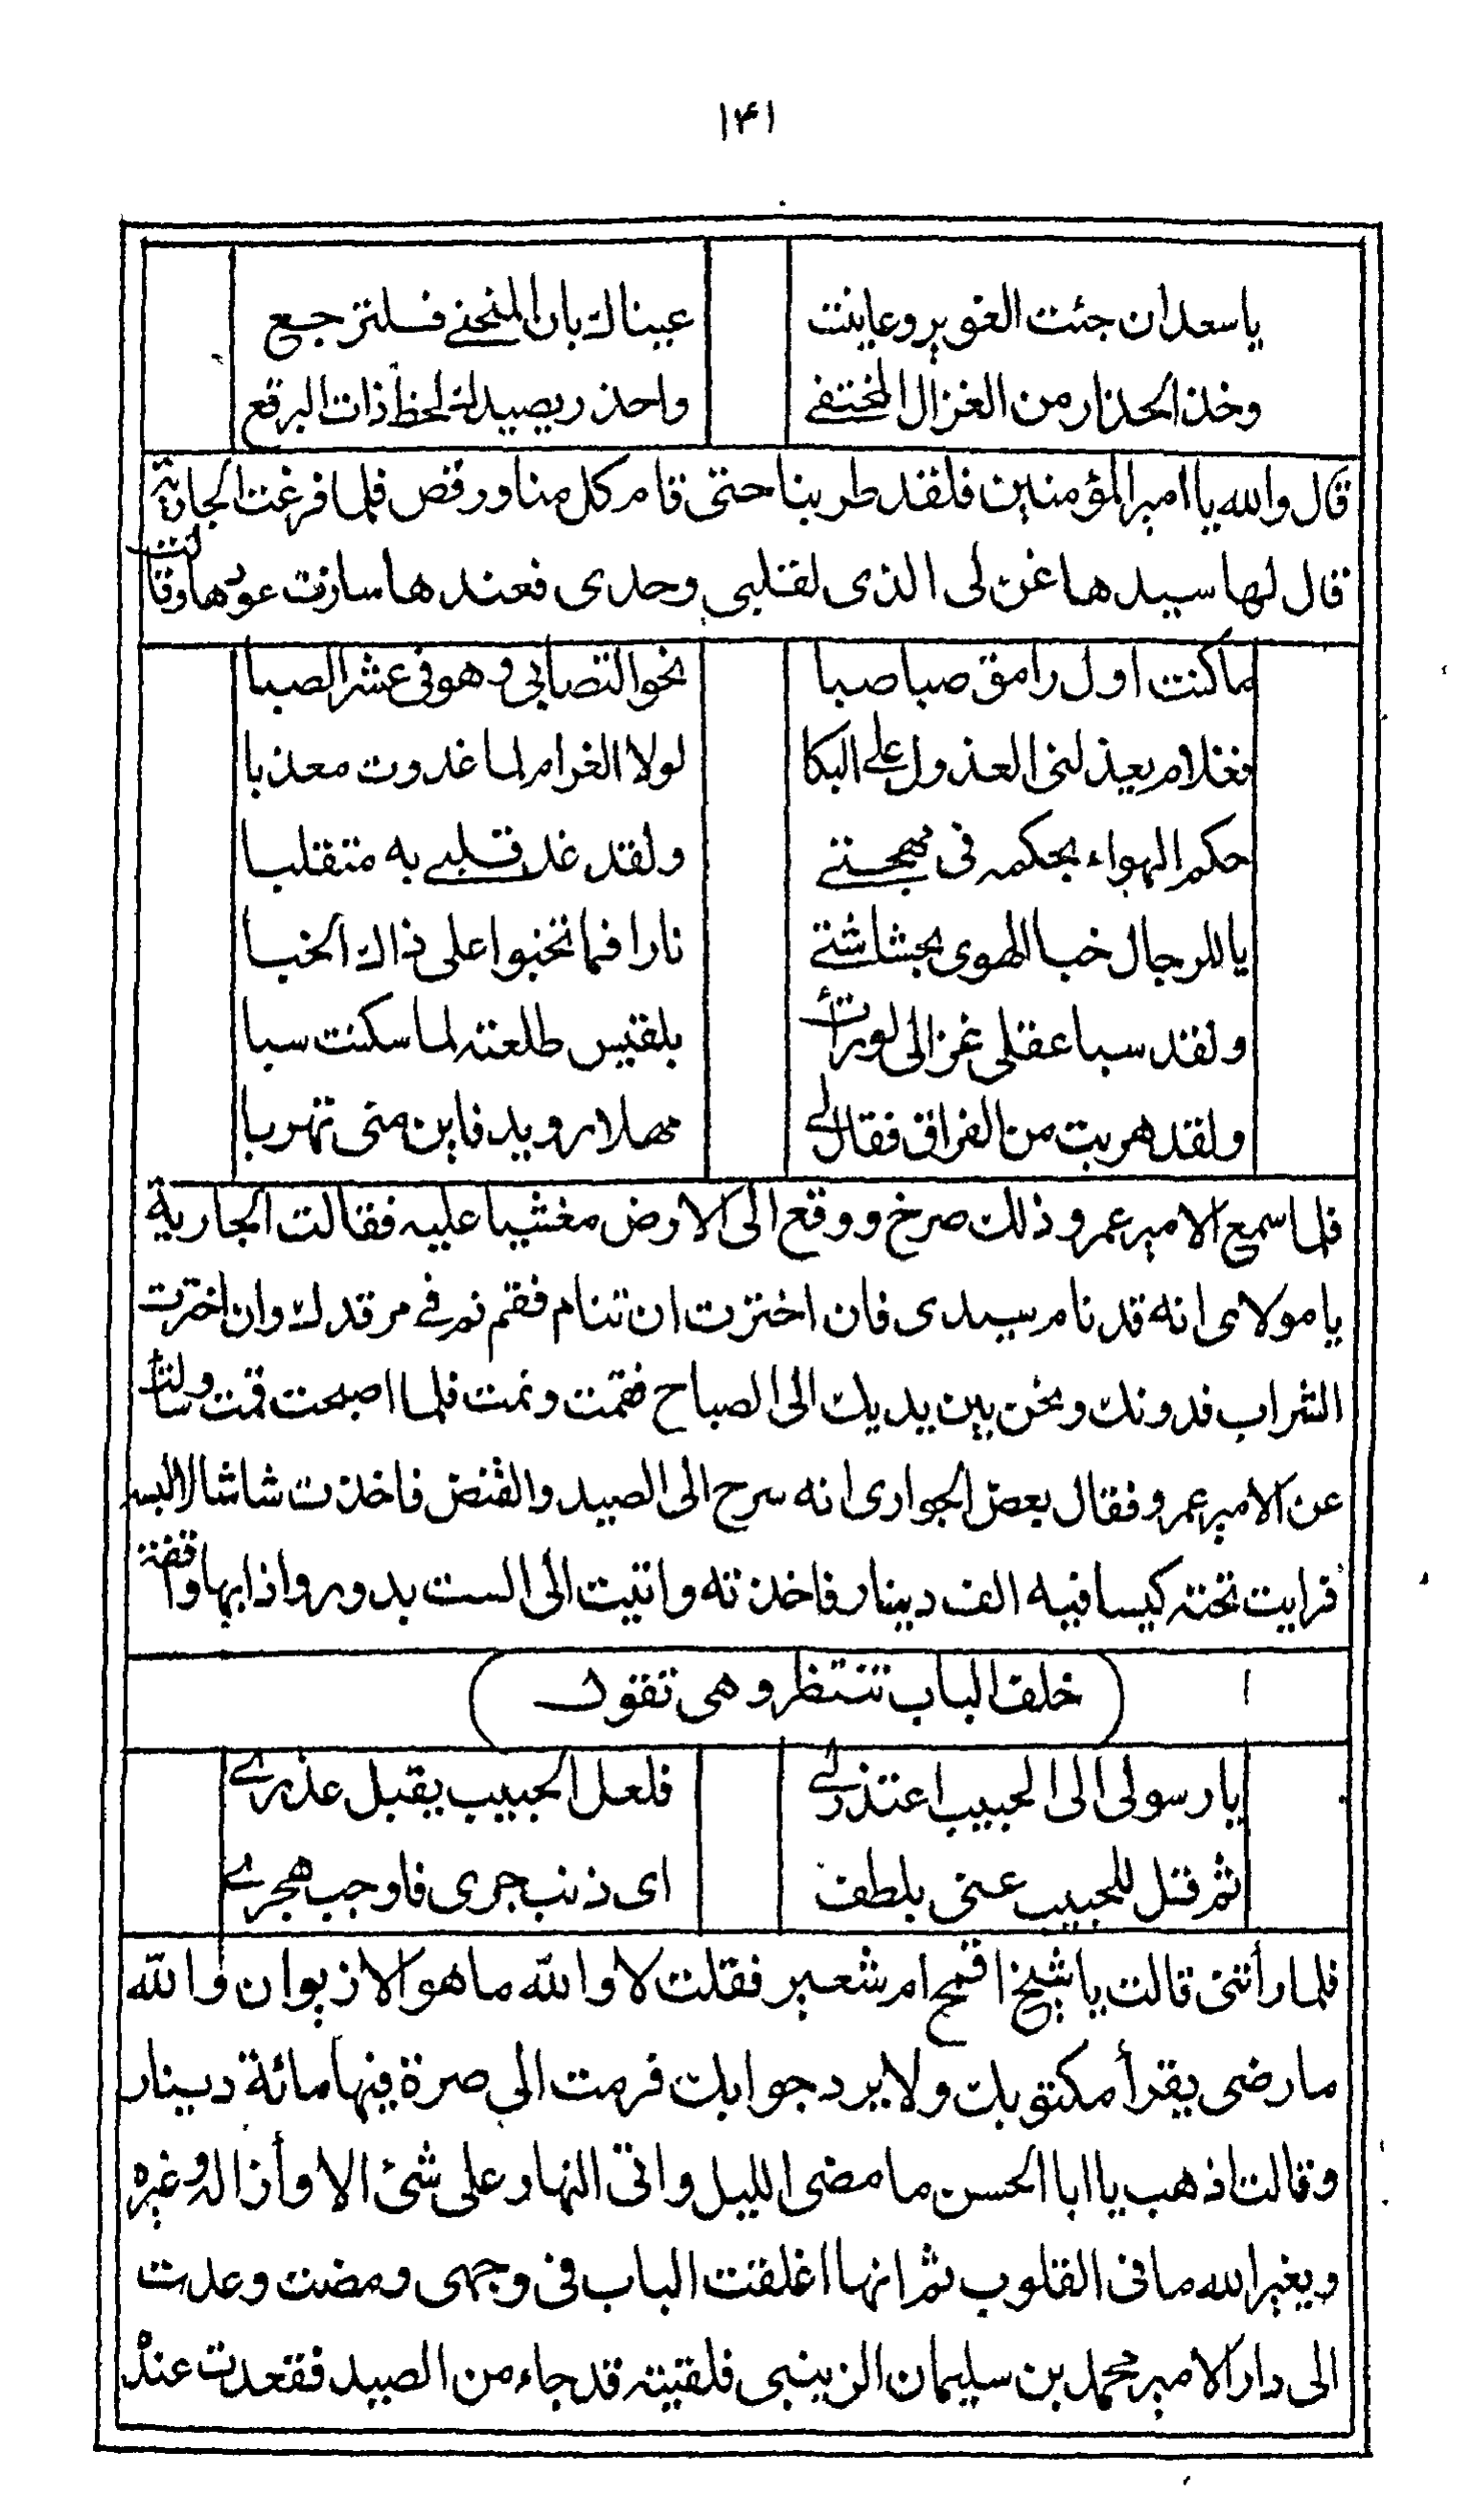 ١٤١
يا سعد ان جئت الغوير وعاينت عيناك بان المنحنى فلترجع
وخذ الحذار من الغزال المختفى واحذر يصيدك لحظ ذات البرقع
قال والله يا امير المؤمنين فلقد طربنا حتى قام كل منا ورقص فلما فرغت الجارية
قال لها سيدها غن لى الذى لقلبى وحدى فعندها سازت عودها وقالت
ما كنت اول رامق صبا صبا نحو التصابى وهو فى عشر الصبا
فغلام يعذلنى العذول على البكا لولا الغرام لما غدوت معذبا
حكم الهواء بحكمه فى مهجتى ولقد غدا قلبى به متقلبا
يا للرجال خبا الهوى بحشاشتى نارا فما تخبوا على ذاك الخبا
ولقد سبا عقلى غزالى لورأت بلقيس طلعته لما سكنت سبا
ولقد هربت من الفراق فقال لى مهلا رويد فاين منى تهربا
فلما سمع الامير عمرو ذلك صرخ ووقع الى الارض مغشيا عليه فقالت الجارية
يا مولاى انه قد نام سيدى فان اخترت ان تنام فقم نم فى مرقدك وان اخترت
الشراب فدونك ونحن بين يديك الى الصباح فقمت ونمت فلما اصبحت قمت وسألت
عن الامير عمرو فقال بعض الجوارى انه سرح الى الصيد والقنص فاخذت شاشا لالبسه
فرايت تحته كيسا فيه الف دينار فاخذته واتيت الى الست بدور واذا بها واقفة
خلف الباب تنتظر وهى تقول
يا رسولى الى الحبيب اعتذر لى فلعل الحبيب يقبل عذرى
ثم قل للحبيب عنى بلطف اى ذنب جرى فاوجب هجرى
فلما رأتنى قالت يا شيخ اقمح ام شعير فقلت لا والله ما هو الا زيوان والله
ما رضى يقرأ مكتوبك ولا يرد جوابك فرمت الى صرة فيها مائة دينار
وقالت اذهب يا ابا الحسن ما مضى الليل واتى النهار على شئ الا وأزاله وغيره
ويغير الله ما فى القلوب ثم انها اغلقت الباب فى وجهى ومضت وعدت
الى دار الامير محمد بن سليمان الزينبى فلقيته قد جاء من الصيد فقعدت عنده